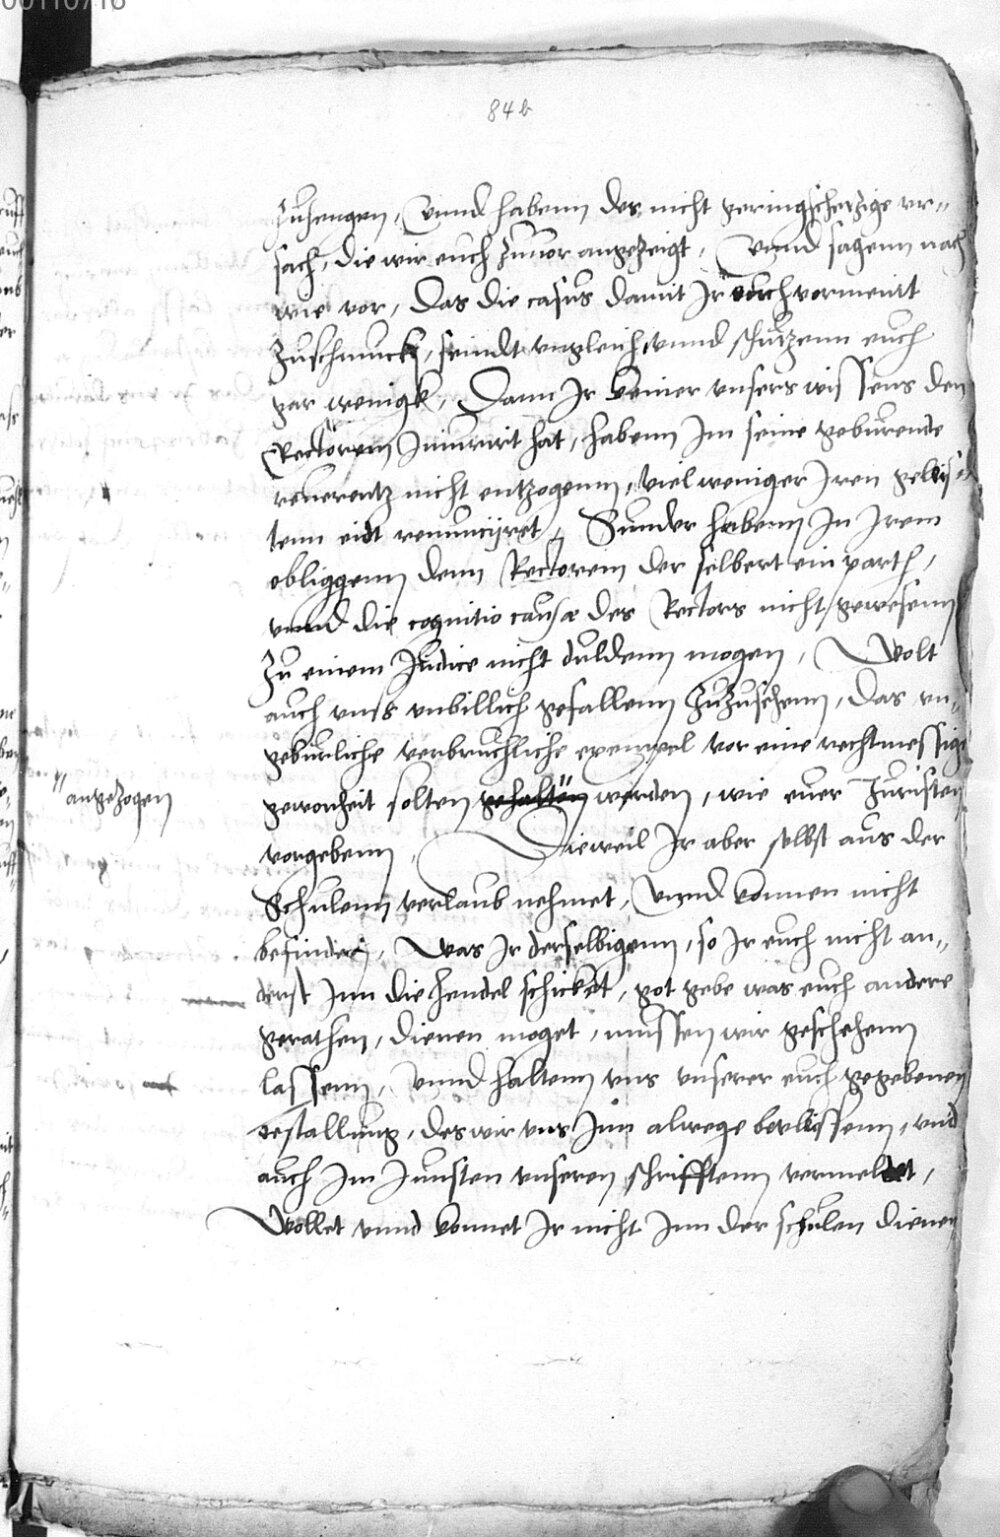 84b
zuhengen, Vnnd habenn des nicht geringschetzige vr-
sach, die wir euch zuuor angezeigt, Vnnd sagenn nach
wie vor, Das die casus damit Ir euch vormeint
zuschmucken, seindt vngleich, vnnd schutzenn euch
gar wenigk, Dann Ir keiner vnsers wissens den
Rectorem Iniuriirt hat, habenn Im seine geburende
reuerentz nicht entzogenn, viel weniger Iren geleis-
tenn eidt renuncijret, Sunder habenn In Irem
obliggenn denn Rectorem der selbert ein part,
vnnd die cognitio causæ des Rectors nicht gewesenn
zu einem Judice nicht duldenn mogen, Wolt
auch vnns vnbillich gefallenn zuzusehenn, Das vn-
geburliche verbruchliche exempel vor eine rechtmessige
gewonheit solten gehalten werden, wie euer Juristen
" angezogen
vorgebenn, Dieweil Ir aber selbst aus der
Schulenn verlaub nehmet, Vnnd konnen nicht
befinden, Was Ir derselbigenn, so Ir euch nicht an-
derst Inn die hendel schicket, got gebe was euch andere
gerathen, dienen moget, mussen wir geschehenn
lassenn, Vnnd haltenn vns vnserer euch gegebenen
bestallung, des wir vns Inn alwege beulissenn, vnd
auch Im Jungsten vnseren schrifftenn vermeldet,
Wollet vnnd konnet Ir nicht Inn der schulen dienen